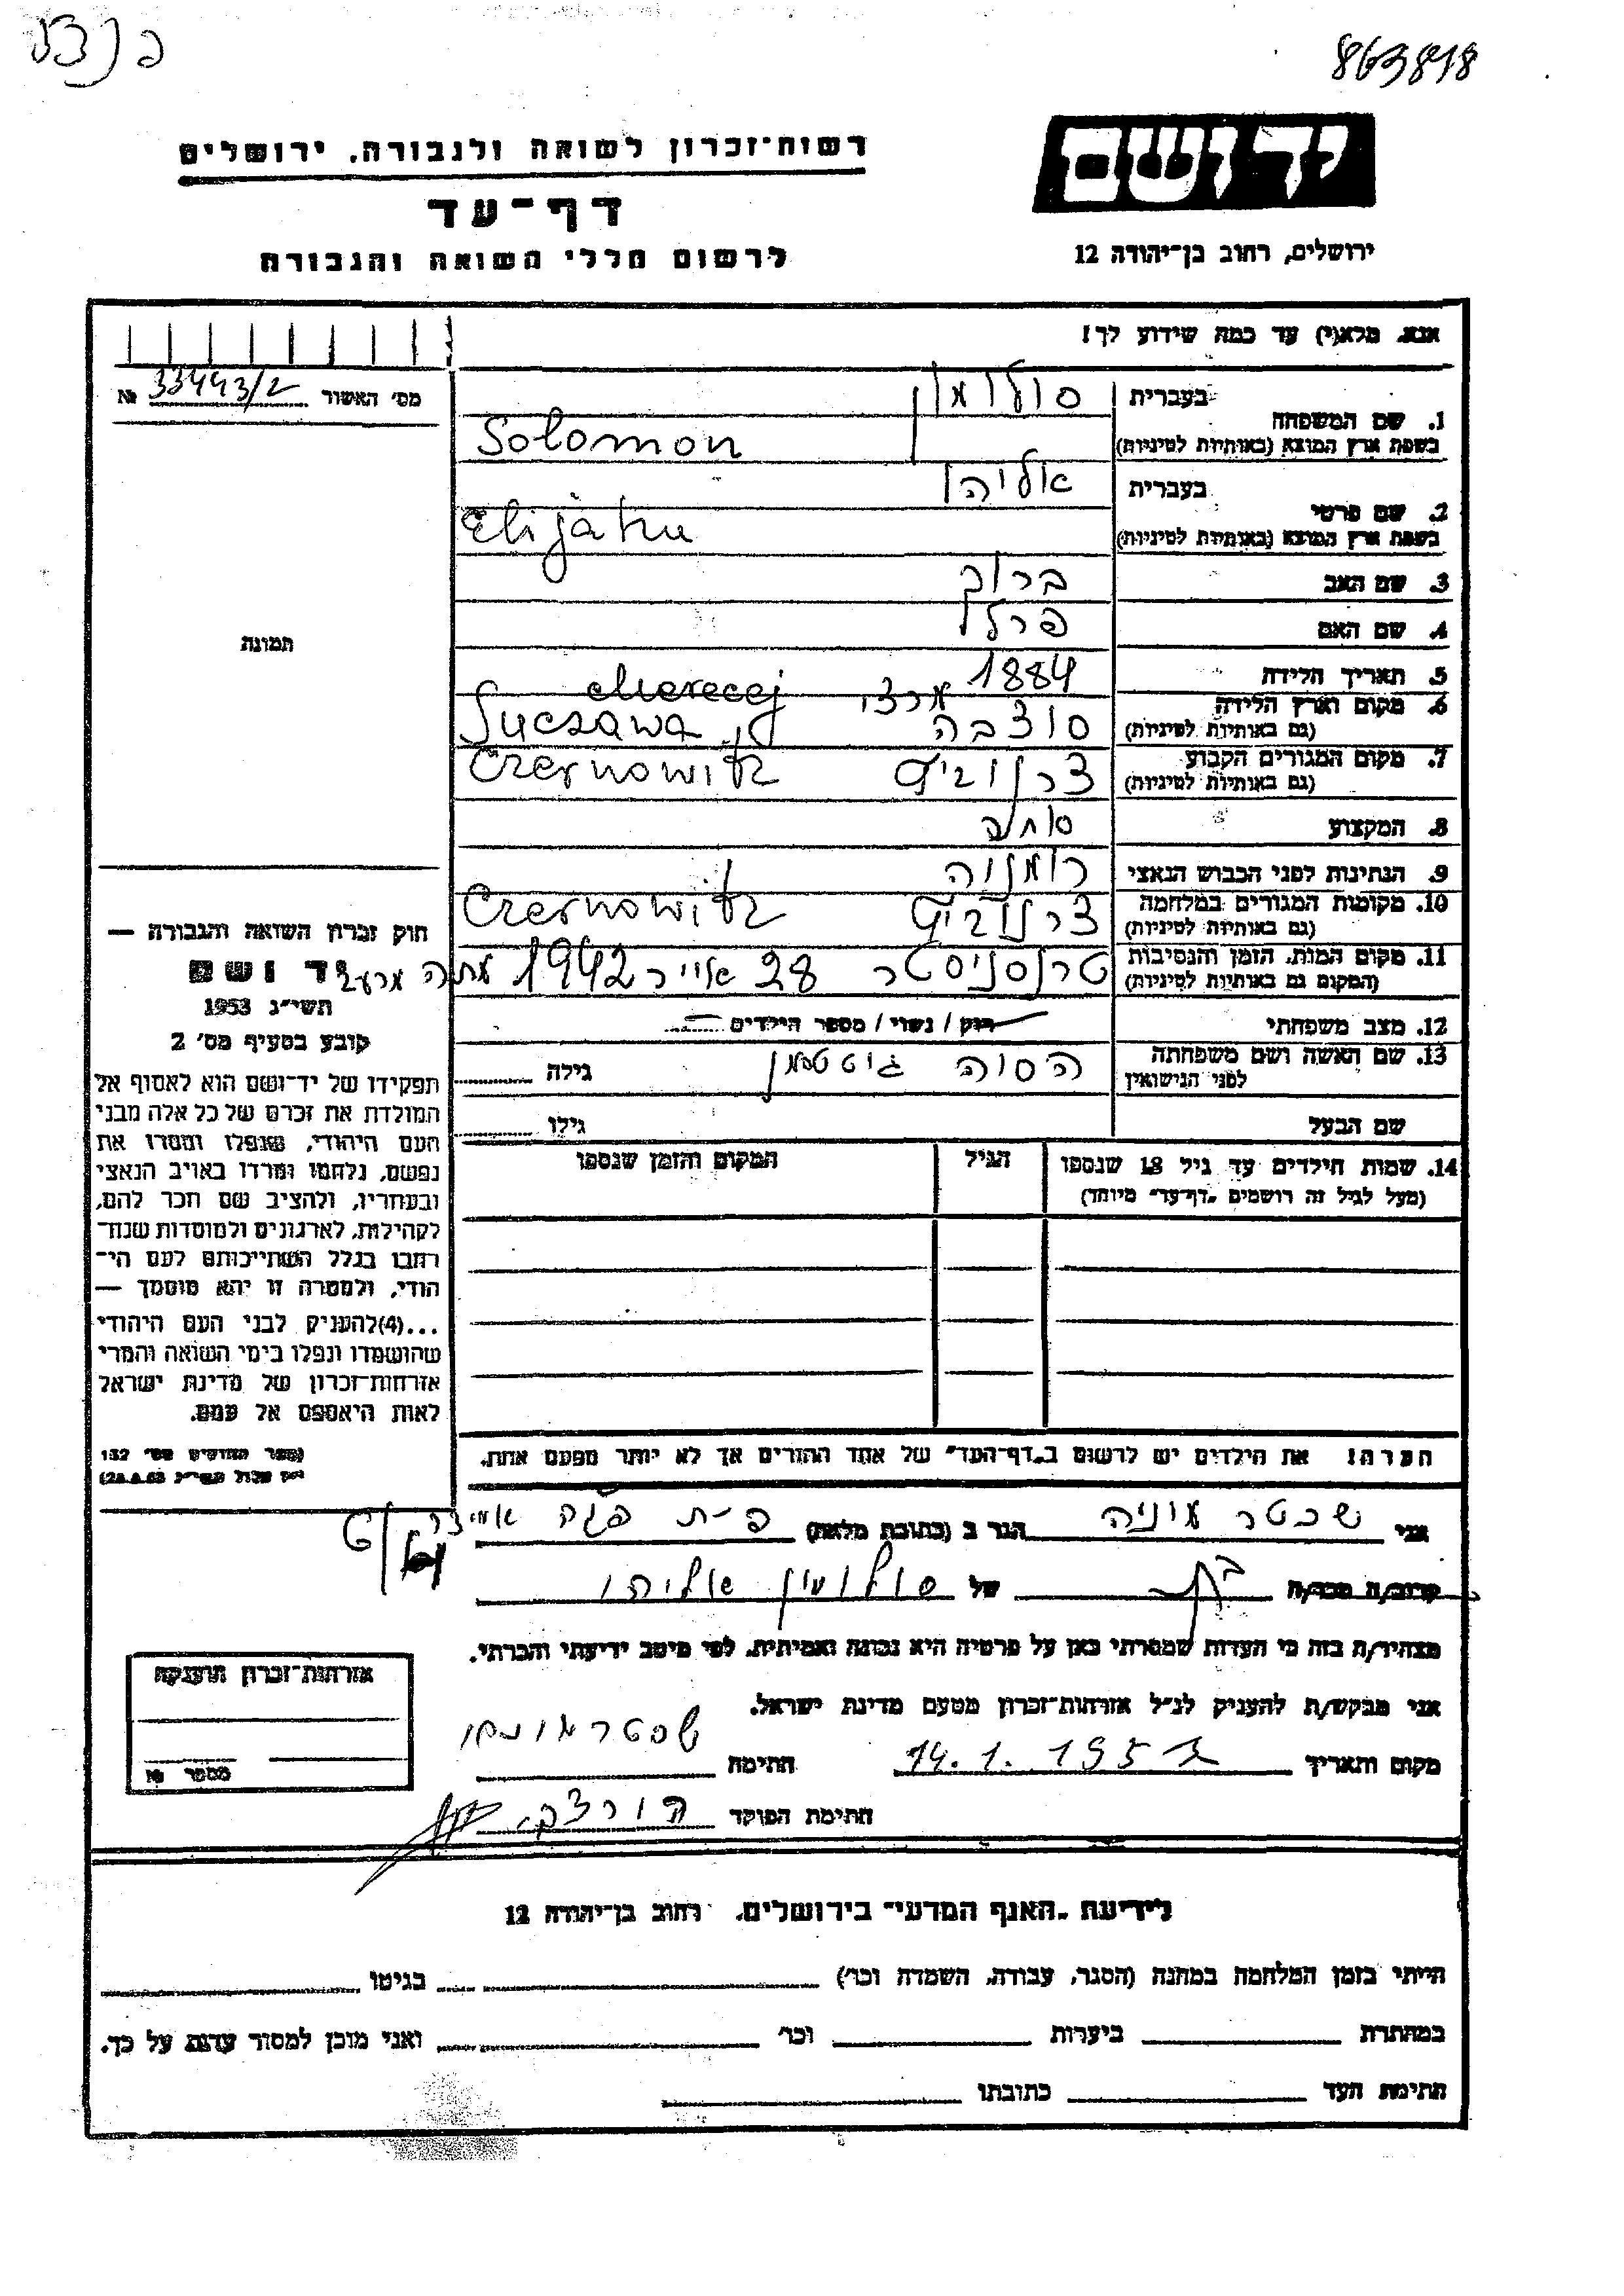 863818
יד ושם
ירושלים, רחוב בן־יהודה 12
רשות־זכרון לשואה ולגבורה, ירושלים
דף־עד
לרשום חללי השואה והגבורה
אנא, מלא(י) עד כמה שידוע לך!
מס׳ האשור 33443/2 №
1. שם המשפחה
בעברית סולומון
בשפת ארץ המוצא (באותיות לטיניות) Solomon
2. שם פרטי
בעברית אליהו
בשפת ארץ המוצא (באותיות לטיניות) Elijahu
3. שם האב ברוך
4. שם האם פרלי
5. תאריך הלידה 1884
6. מקום וארץ הלידה
(גם באותיות לטיניות) סוצבה Suczawa,
7. מקום המגורים הקבוע
(גם באותיות לטיניות) צרנוביץ Czernowitz
8. המקצוע סוחר
9. הנתינות לפני הכבוש הנאצי רומניה
10. מקומות המגורים במלחמה
(גם באותיות לטיניות) צרנוביץ Czernowitz
11. מקום המות, הזמן והנסיבות
(המקום גם באותיות לטיניות) טרנסניסטר 28 אייר 1942 מתה מרעב
12. מצב משפחתי רווק / נשוי / מספר הילדים
13. שם האשה ושם משפחתה
לפני הנישואין הסוה גוטמן גילה
שם הבעל גילו
14. שמות הילדים עד גיל 18 שנספו
(מעל לגיל זה רושמים „דף־עד״ מיוחד)
הגיל
המקום והזמן שנספו
הערה! את הילדים יש לרשום ב„דף־העד״ של אחד ההורים אך לא יותר מפעם אחת.
תמונה
חוק זכרון השואה והגבורה —
יד ושם
תשי״ג 1953
קובע בסעיף מס׳ 2
תפקידו של יד־ושם הוא לאסוף אל
המולדת את זכרם של כל אלה מבני
העם היהודי, שנפלו ומסרו את
נפשם, נלחמו ומרדו באויב הנאצי
ובעוזריו, ולהציב שם וזכר להם,
לקהילות, לארגונים ולמוסדות שנח־
רבו בגלל השתייכותם לעם הי־
הודי, ולמטרה זו יהא מוסמך —
...(4) להעניק לבני העם היהודי
שהושמדו ונפלו בימי השואה והמרי
אזרחות־זכרון של מדינת ישראל
לאות היאספם אל עמם.
(ספר החוקים מס׳ 132
אני שכטר מוניה הגר ב (כתובת מלאה)
קרוב/ה מכר/ה בת של סולומון אליהו
מצהיר/ה בזה כי העדות שמסרתי כאן על פרטיה היא נכונה ואמיתית, לפי מיטב ידיעתי והכרתי.
אני מבקש/ת להעניק לנ״ל אזרחות־זכרון מטעם מדינת ישראל.
מקום ותאריך 14.1.195 חתימה
חתימת הפוקד
אזרחות־זכרון הוענקה
מספר №
לידיעת „האגף המדעי״ בירושלים, רחוב בן־יהודה 12
הייתי בזמן המלחמה במחנה (הסגר, עבודה, השמדה וכו׳) בגיטו
במחתרת ביערות וכו׳ ואני מוכן למסור עדות על כך.
חתימת העד כתובתו